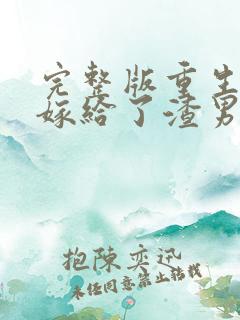 完整版重生
嫁给了渣男
抱陈奕迅
未经同意禁止转载